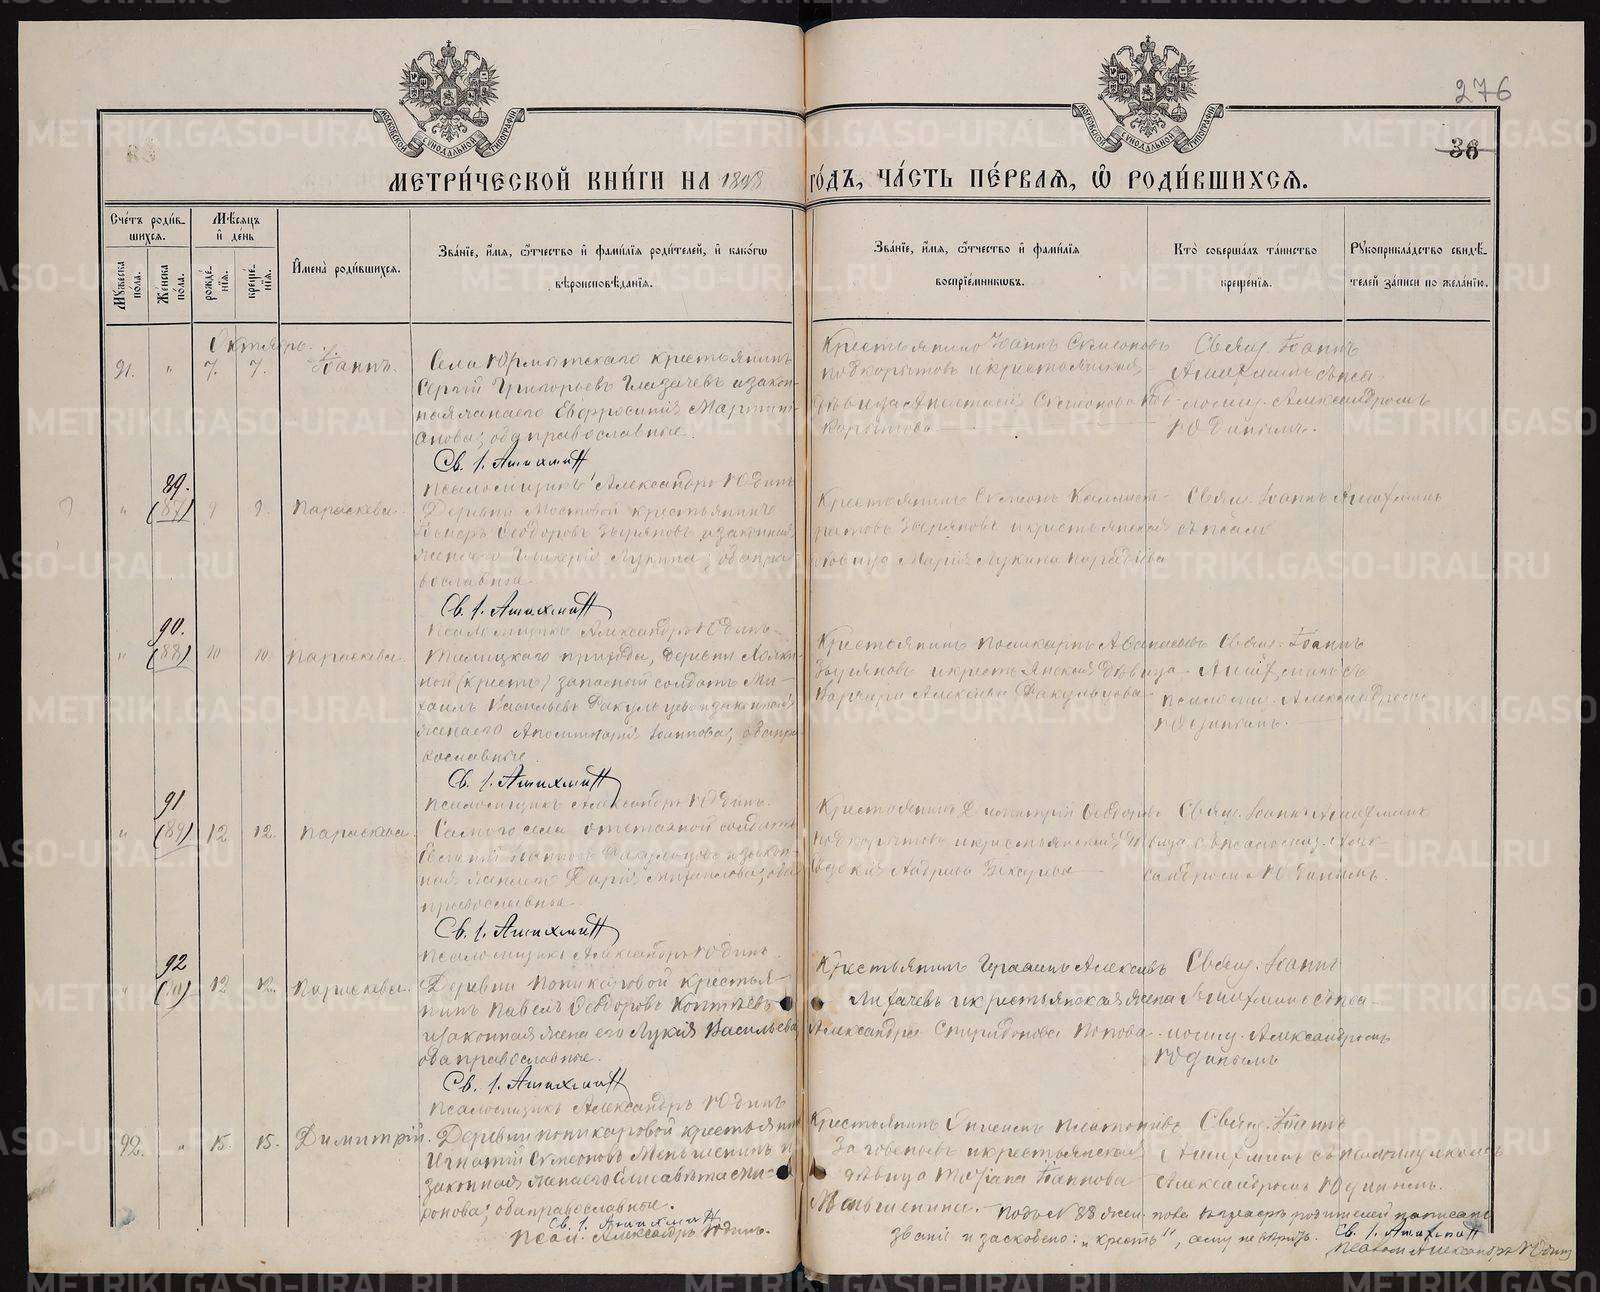 276
36
МОСКОВСКОЙ СѴНОДАЛЬНОЙ ТИПОГРАФІИ
МЕТРИ́ЧЕСКОЙ КНИ́ГИ НА 1898 ГО́ДЪ, ЧА́СТЬ ПЕ́РВАЯ, Ѡ РОДИ́ВШИХСЯ.
Сче́тъ роди́вшихся.
Мѣ́сяцъ и де́нь
Му́жеска по́ла.
Же́нска по́ла.
рожде́нія.
креще́нія.
Имена̀ роди́вшихся.
Зва́ніе, и́мя, ѻ́тчество и фами́лія роди́телей, и како́гѡ вѣроисповѣ́данія.
Зва́ніе, и́мя, ѻ́тчество и фами́лія воспріе́мниковъ.
Кто̀ соверша́лъ та́инство креще́нія.
Рукоприкла́дство свидѣ́телей за́писи по жела́нію.
Октябрь.
91. " 7. 7. Іоаннъ.
Села Юрмытскаго крестьянинъ
Сергій Григорьевъ Глазачевъ и закон-
ная жена его Евфросинія Мартині-
анова; оба православные.
Св. І. Ашихминъ
Псаломщикъ Александръ Юдинъ
Крестьянинъ Іоаннъ Симеоновъ
Подкорытовъ и крестьянская
дѣвица Анастасія Симеонова Под-
корытова
Свящ. Іоаннъ
Ашихминъ съ пса-
ломщ. Александромъ
Юдинымъ.
89.
" (87) 9 9. Параскева.
Деревни Мостовой крестьянинъ
Петръ Ѳеодоровъ Зыряновъ и законная
жена его Гликерія Лукина; оба пра-
вославные
Св. І. Ашихминъ
Псаломщикъ Александръ Юдинъ
Крестьянинъ Симеонъ Каллист-
ратовъ Зыряновъ и крестьянская
дѣвица Марія Лукина
Свящ. Іоаннъ Ашихминъ
съ псалом
90.
" (88) 10 10. Параскева.
прихода, деревни
ной (кресть) запасный солдатъ Ми-
хаилъ Васильевъ Факультовъ и законная
жена его Аполлинарія Іоаннова; оба пра-
вославные
Св. І. Ашихминъ
Псаломщикъ Александръ Юдинъ.
Крестьянинъ Поликарпъ Аѳанасьевъ
Зыряновъ и крестьянская дѣвица
Варвара Алексѣева Факультова
Свящ. Іоаннъ
Ашихминъ съ
псаломщ. Александромъ
Юдинымъ.
91
" (89) 12 12. Параскева.
Самого села отставной солдатъ
Іоанновъ Факультовъ и закон-
ная жена его Дарія Михайлова; оба
православные.
Св. І. Ашихминъ
Псаломщикъ Александръ Юдинъ.
Крестьянинъ Димитрій Ѳеодоровъ
Подкорытовъ и крестьянская дѣвица
Свящ. Іоаннъ Ашихминъ
съ псаломщ. Алек-
сандромъ Юдинымъ.
92
" (90) 12 12. Параскева.
Деревни Поликаровой крестья-
нинъ Павелъ Ѳеодоровъ Коптяевъ
и законная жена его Лукія Васильева
оба православные.
Св. І. Ашихминъ
Псаломщикъ Александръ Юдинъ
Крестьянинъ Герасимъ Алексѣевъ
Лихачевъ и крестьянская жена
Александра Спиридонова Попова
Свящ. Іоаннъ
Ашихминъ съ пса-
ломщ. Александромъ
Юдинымъ
92. " 15. 15. Димитрій.
Деревни Поликаровой крестьянинъ
Игнатій Симеоновъ Меньшенинъ и
законная жена его Елисавета Ми-
ронова; оба православные.
Св. І. Ашихминъ
Псал. Александръ Юдинъ.
Крестьянинъ Платоновъ
Заговеньевъ и крестьянская
дѣвица Татіана Іоаннова
Меньшенина.
Свящ. Іоаннъ
Ашихминъ съ псаломщикомъ
Александромъ Юдинымъ.
Подъ № 88 родителей написано
званіе и заскоблено: „кресть", сему не вѣрить.
Св. І. Ашихминъ
Псалом Александръ Юдинъ
METRIKI.GASO-URAL.RU